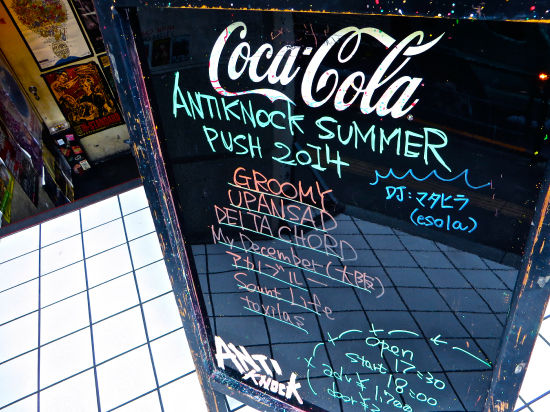 Coca-Cola
ANTIKNOCK SUMMER
PUSH 2014
DJ:マタヒラ
(esola)
GROOMY
UPANSAD
DELTA CHORD
My December(大阪)
アカルブルー
Sount Life
tovilas
open
start 17:30
18:00
adv ¥1,700
door ¥2
ANTI
KNOCK